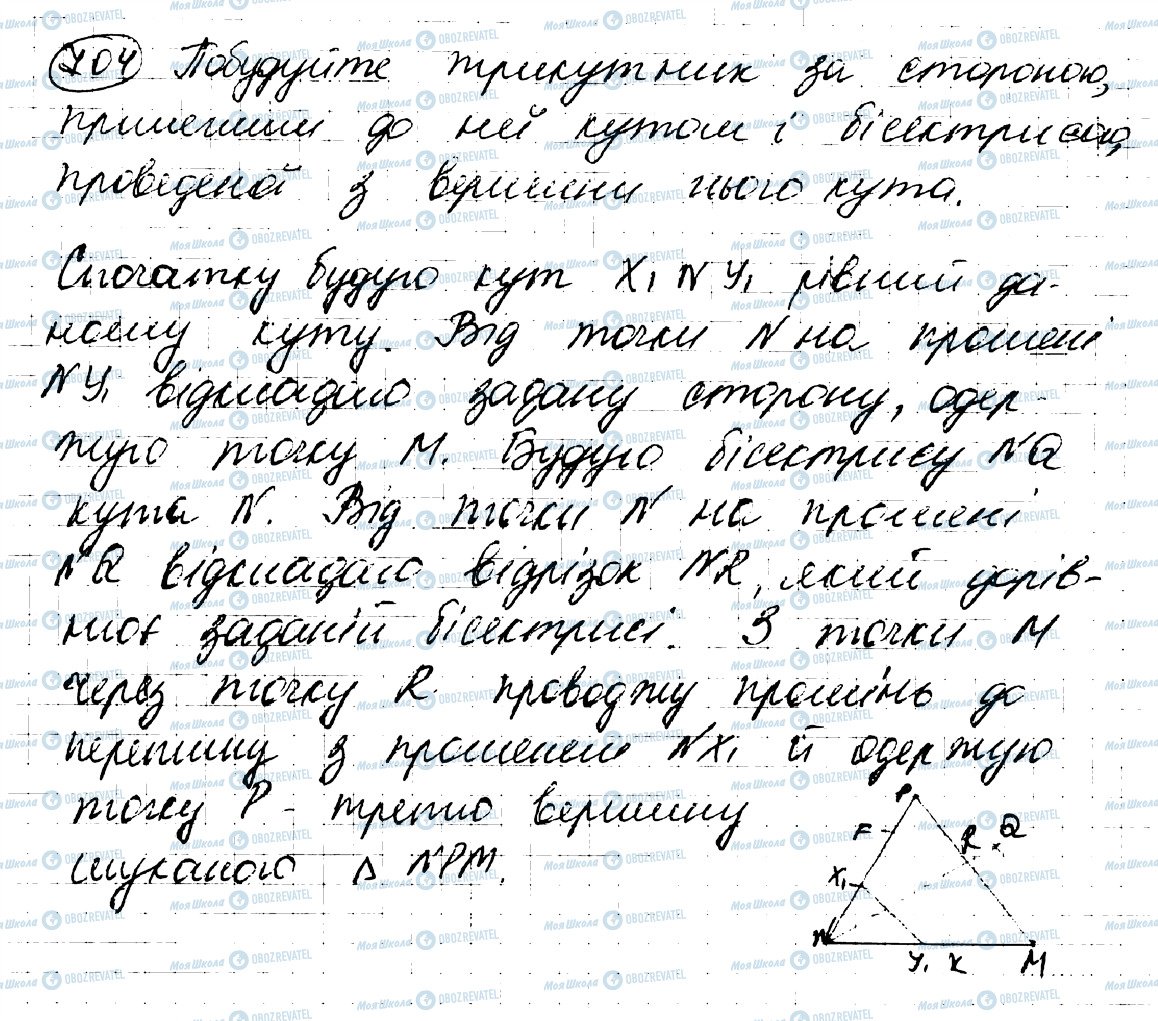 704 Побудуйте трикутник за стороною,
прилеглим до неї кутом і бісектрисою,
проведеной з вершини цього кута.
Спочатку будую кут X₁NY₁ рівний да-
ному куту. Від точки N на промені
NY₁ відкладаю задану сторону, одер-
жую точку M. Будую бісектрису NQ
кута N. Від точки N на промені
NQ відкладаю відрізок NR, який дорів-
нює заданій бісектрисі. З точки M
через точку R проводжу промінь до
перетину з променем NX₁ й одержую
точку P - третю вершину
шуканого Δ NPM.
P
F
R Q
X₁
N
Y₁ K M
МояШкола OBOZREVATEL